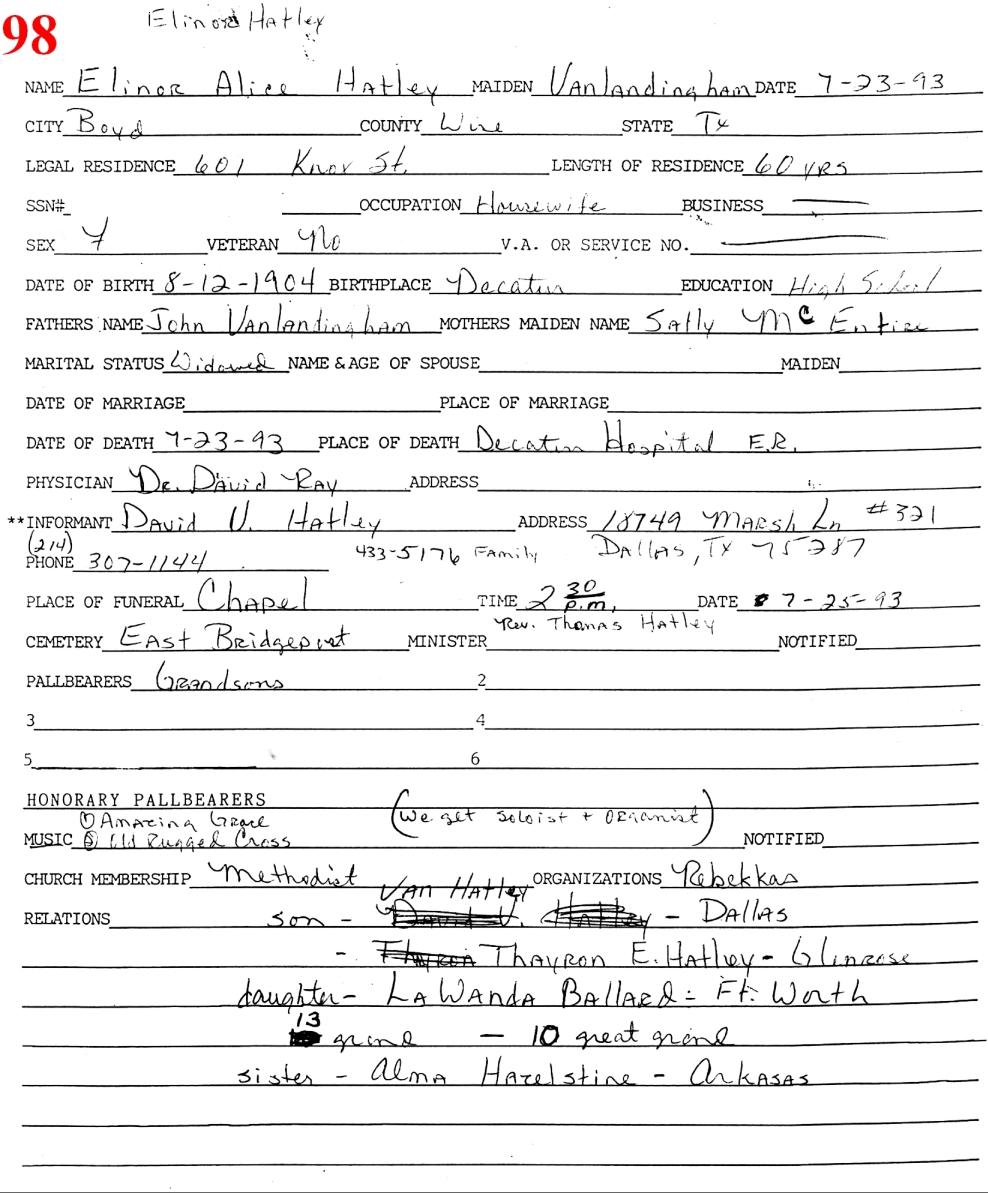 Elinor Hatley
98
NAME Elinor Alice Hatley MAIDEN Vanlandingham DATE 7-23-93
CITY Boyd COUNTY Wise STATE Tx
LEGAL RESIDENCE 601 Knox St. LENGTH OF RESIDENCE 60 yrs
SSN# OCCUPATION Housewife BUSINESS
SEX F VETERAN No V.A. OR SERVICE NO.
DATE OF BIRTH 8-12-1904 BIRTHPLACE Decatur EDUCATION High School
FATHERS NAME John Vanlandingham MOTHERS MAIDEN NAME Sally McEntire
MARITAL STATUS Widowed NAME & AGE OF SPOUSE MAIDEN
DATE OF MARRIAGE PLACE OF MARRIAGE
DATE OF DEATH 7-23-93 PLACE OF DEATH Decatur Hospital E.R.
PHYSICIAN Dr. David Ray ADDRESS
**INFORMANT David V. Hatley ADDRESS 18749 Marsh Ln #321
(214)
PHONE 307-1144 433-5176 Family Dallas, Tx 75287
PLACE OF FUNERAL Chapel TIME 2 30 p.m. DATE 7-25-93
Rev. Thomas Hatley
CEMETERY East Bridgeport MINISTER NOTIFIED
PALLBEARERS Grandsons 2
3 4
5 6
HONORARY PALLBEARERS
① Amazing Grace (we get soloist + organist)
MUSIC ② Old Rugged Cross NOTIFIED
CHURCH MEMBERSHIP Methodist ORGANIZATIONS Rebekkas
Van Hatley
RELATIONS son - David V. Hatley - Dallas
- Thayron E. Hatley - Glinrose
daughter - LaWanda Ballard = Ft. Worth
13 grand - 10 great grand
sister - Alma Hazelstine - Arkasas